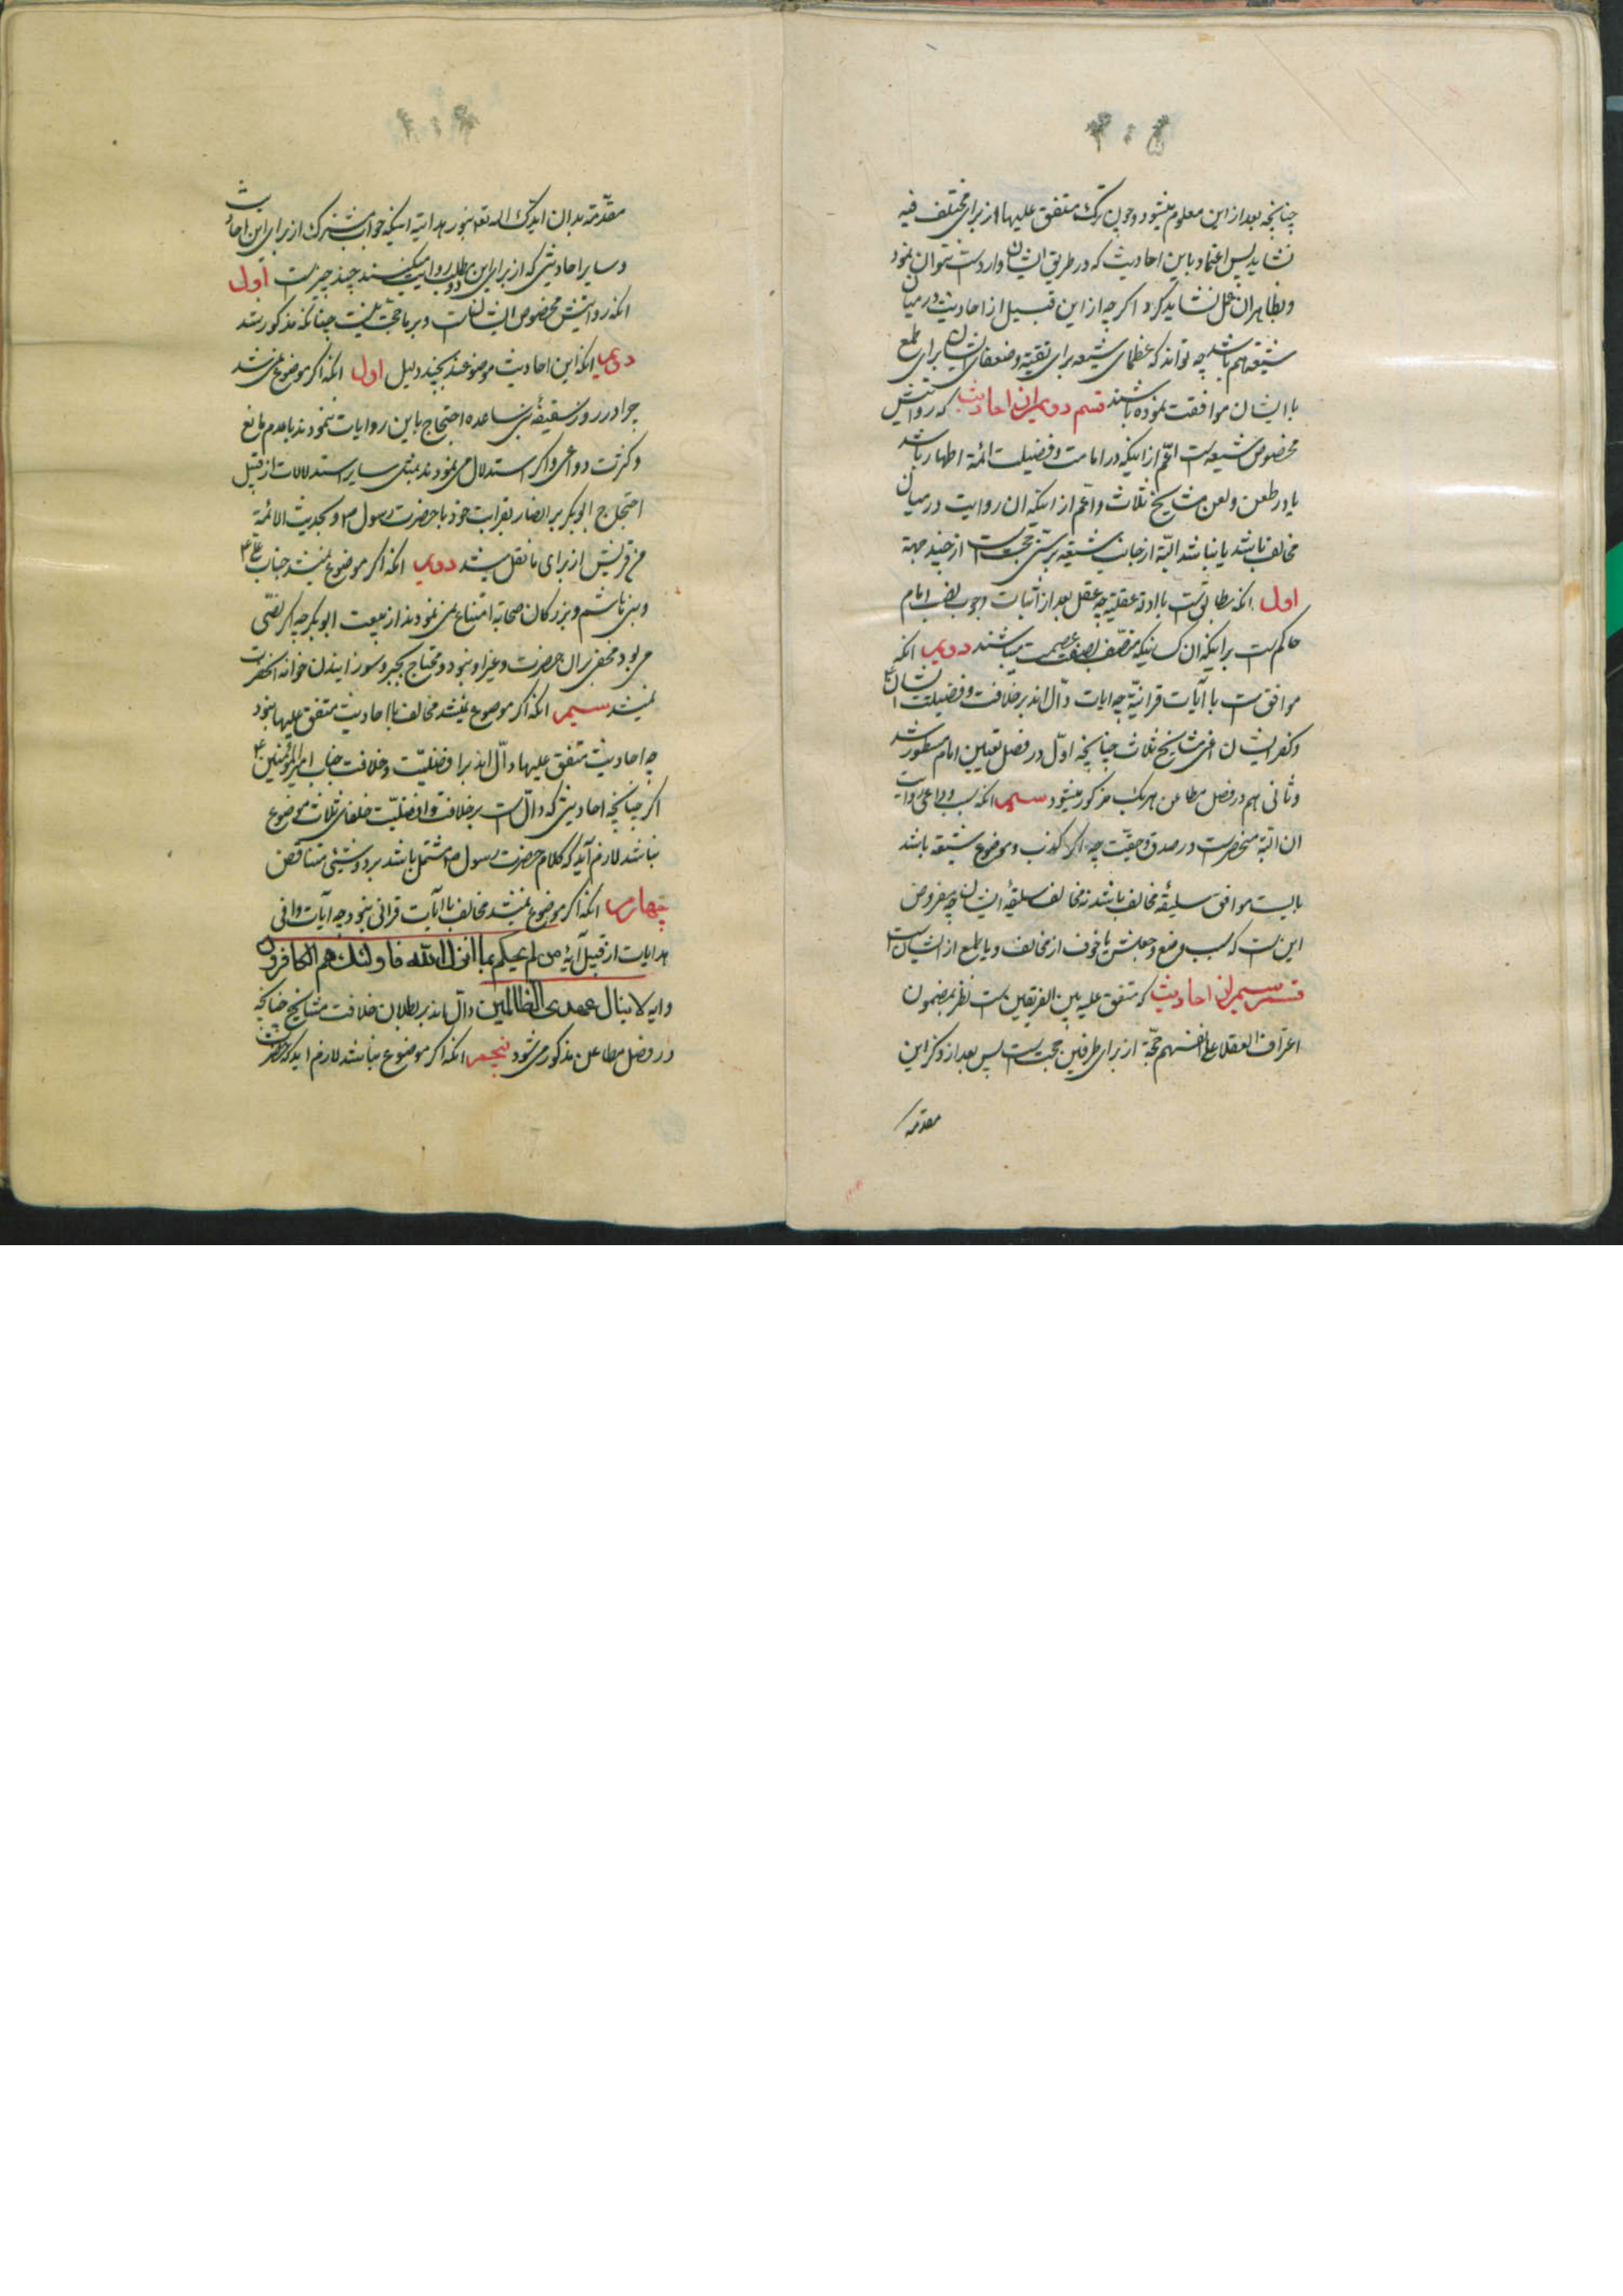 چنانچه بعد از این معلوم میشود و چون ترک متفق علیها از برای مختلف فیه
نشاید پس اعتماد باین احادیث که در طریق ایشان وارد است نتوان نمود
و بظاهر آن عمل نشاید کرد و اگر چه از این قبیل از احادیث در میان
شیعه هم باشد چه تواند که عظمای شیعه برای تقیه و ضعفای ایشان برای طمع
با ایشان موافقت نموده باشند قسم دویم ان احادیث که روایتش
مخصوص شیعه است اعم از اینکه در امامت و فضیلت ائمه اطهار باشد
یا در طعن و لعن مشایخ ثلاث و اعم از اینکه ان روایت در میان
مخالف باشد یا نباشد البته از جانب شیعه بر سنی حجت است از چند جهة
اول انکه مطابق است با ادله عقلیه چه عقل بعد از اثبات وجوب نصب امام
حاکم است بر اینکه ان کسانیکه متصف بصفت عصمت میباشند دویم انکه
موافق است با آیات قرانیه چه ایات دال اند بر خلافت و فضیلت ایشان
و کفر ایشان اعنی مشایخ ثلاث چنانچه اول در فصل تعیین امام مسطور شد
و ثانی هم در فصل مطاعن هر یک مذکور میشود سیم انکه سبب و داعی روایت
ان البته منحصر است در صدق و حقیت چه اگر کذب و موضوع شیعه باشد
بایست موافق سلیقه مخالف باشد نه مخالف سلیقه ایشان چه مفروض
این است که سبب وضع و جعلش یا خوف از مخالف و یا طمع از ایشان است
قسم سیم ان احادیث که متفق علیه بین الفریقین است نظر بمضمون
اعتراف العقلاء علی انفسهم حجة از برای طرفین حجت است پس بعد از ذکر این
مقدمه
مقدمة بدان ایدک الله تعالی بنور هدایته اینکه جواب مشترک از برای این احادیث
و سایر احادیثی که از برای این مطلب روایت میکنند چند چیز است اول
انکه روایتش مخصوص ایشان است و بر ما حجت نیست چنانکه مذکور شد
دویم انکه این احادیث موضوعند بچند دلیل اول انکه اگر موضوع نمی شد
چرا در روز سقیفه بنی ساعده احتجاج باین روایات ننمودند با عدم مانع
و کثرت دواعی و اگر استدلال می نمودند بمثل سایر استدلالات از قبیل
احتجاج ابوبکر بر انصار بقرابت خود با حضرت رسول ص و بحدیث الائمة
من قریش از برای ما نقل میشد دویم انکه اگر موضوع نمیشد جناب علی ع
و بنی هاشم و بزرگان صحابه امتناع نمی نمودند از بیعت ابوبکر چه اگر نصی
می بود مخفی بر ان حضرت و غیر او نبود و محتاج بجبر و سوزانیدن خوانه انحضرت
نمیشد سیم انکه اگر موضوع نمیشد مخالف با احادیث متفق علیها نبود
چه احادیث متفق علیها دال اند بر افضلیت و خلافت جناب امیر المؤمنین ع
اگر چنانچه احادیثی که دال است بر خلافت و افضلیت خلفای ثلاث موضوع
نباشد لازم آید که کلام حضرت رسول ص مشتمل باشد بر دو شیئی متناقض
چهارم انکه اگر موضوع نمیشد مخالف با آیات قرانی نبود چه آیات وافی
هدایات از قبیل آیه من لم یحکم بما انزل الله فاولئک هم الکافرون
و ایه لا ینال عهدی الظالمین دال اند بر بطلان خلافت مشایخ چنانچه
در فصل مطاعن مذکور می شود پنجم انکه اگر موضوع نباشد لازم اید که حضرت